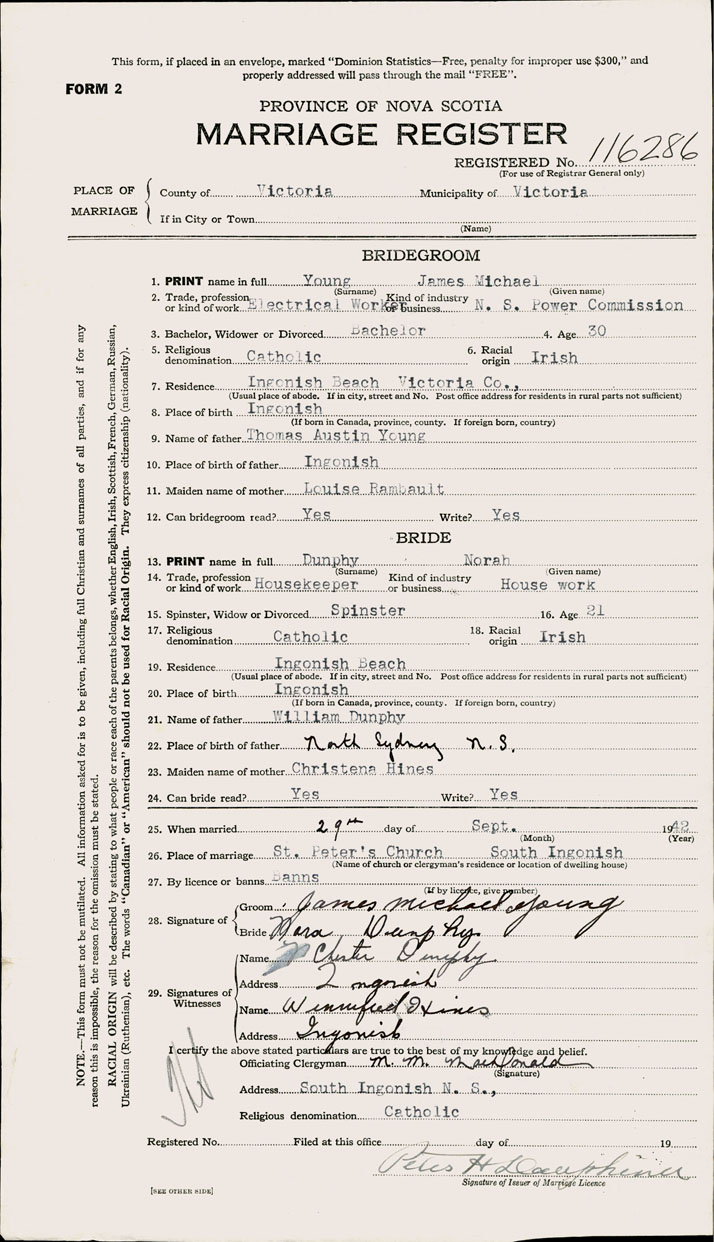 This form, if placed in an envelope, marked "Dominion Statistics—Free, penalty for improper use $300," and
properly addressed will pass through the mail "FREE".
FORM 2
PROVINCE OF NOVA SCOTIA
MARRIAGE REGISTER
REGISTERED No. 116286
(For use of Registrar General only)
PLACE OF MARRIAGE
County of Victoria Municipality of Victoria
If in City or Town
(Name)
BRIDEGROOM
1. PRINT name in full Young James Michael
(Surname) (Given name)
2. Trade, profession or kind of work Electrical Worker Kind of industry or business N. S. Power Commission
3. Bachelor, Widower or Divorced Bachelor 4. Age 30
5. Religious denomination Catholic 6. Racial origin Irish
7. Residence Ingonish Beach Victoria Co.,
(Usual place of abode. If in city, street and No. Post office address for residents in rural parts not sufficient)
8. Place of birth Ingonish
(If born in Canada, province, county. If foreign born, country)
9. Name of father Thomas Austin Young
10. Place of birth of father Ingonish
11. Maiden name of mother Louise Rambault
12. Can bridegroom read? Yes Write? Yes
BRIDE
13. PRINT name in full Dunphy Norah
(Surname) (Given name)
14. Trade, profession or kind of work Housekeeper Kind of industry or business House work
15. Spinster, Widow or Divorced Spinster 16. Age 21
17. Religious denomination Catholic 18. Racial origin Irish
19. Residence Ingonish Beach
(Usual place of abode. If in city, street and No. Post office address for residents in rural parts not sufficient)
20. Place of birth Ingonish
(If born in Canada, province, county. If foreign born, country)
21. Name of father William Dunphy
22. Place of birth of father North Sydney N. S.
23. Maiden name of mother Christena Hines
24. Can bride read? Yes Write? Yes
25. When married 29th day of Sept. 1942
(Month) (Year)
26. Place of marriage St. Peter's Church South Ingonish
(Name of church or clergyman's residence or location of dwelling house)
27. By licence or banns Banns
(If by licence, give number)
28. Signature of
Groom James Michael Young
Bride Nora Dunphy
29. Signatures of Witnesses
Name Chester Dunphy
Address Ingonish
Name Winnifred Hines
Address Ingonish
I certify the above stated particulars are true to the best of my knowledge and belief.
Officiating Clergyman M. M. MacDonald
(Signature)
Address South Ingonish N. S.,
Religious denomination Catholic
Registered No. Filed at this office day of 19
Peter H Dauphinee
Signature of Issuer of Marriage Licence
[SEE OTHER SIDE]
NOTE.—This form must not be mutilated. All information asked for is to be given, including full Christian and surnames of all parties, and if for any
reason this is impossible, the reason for the omission must be stated.
RACIAL ORIGIN will be described by stating to what people or race each of the parents belongs, whether English, Irish, Scottish, French, German, Russian,
Ukrainian (Ruthenian), etc. The words "Canadian" or "American" should not be used for Racial Origin. They express citizenship (nationality).